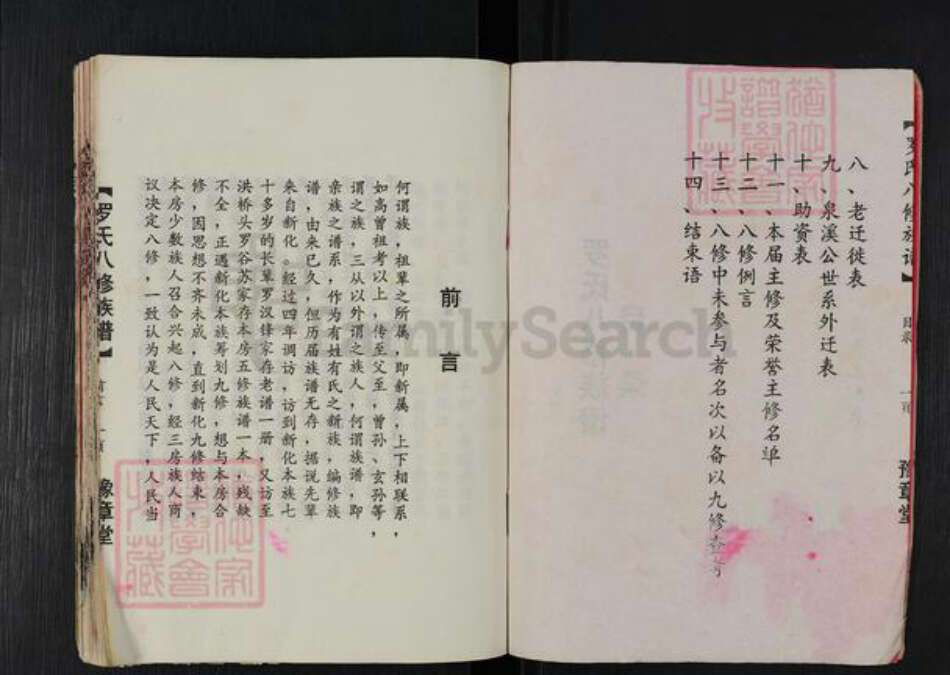 【罗氏八修族谱】
目录
豫章堂
八、老迁徙表
九、泉溪公世系外迁表
十、助资表
十一、本届主修及荣誉主修名单
十二、八修例言
十三、八修中未参与者名次以备以九修查考
十四、结束语
前言
何谓族，祖辈之所属，即新属，上下相联系，
如高曾祖考以上，传至父至，曾孙、玄孙等，
谓之族，三从以外谓之族人，何谓族谱，即
亲族之谱系，作为有姓有氏之新族，编修族
谱，由来已久，但历届族谱无存，据说先辈
来自新化。经过四年调访，访到新化本族七
十多岁的长辈罗汉锋家存老谱一册，又访至
洪桥头罗谷苏家存本房五修族谱一本，残缺
不全，正遇新化本族筹划九修，想与本房合
修，因思想不齐未成，直到新化九修结束，
本房少数族人召合兴起八修，经三房族人商
议决定八修，一致认为是人民天下，人民当
【罗氏八修族谱】
前言
一页
豫章堂
FamilySearch